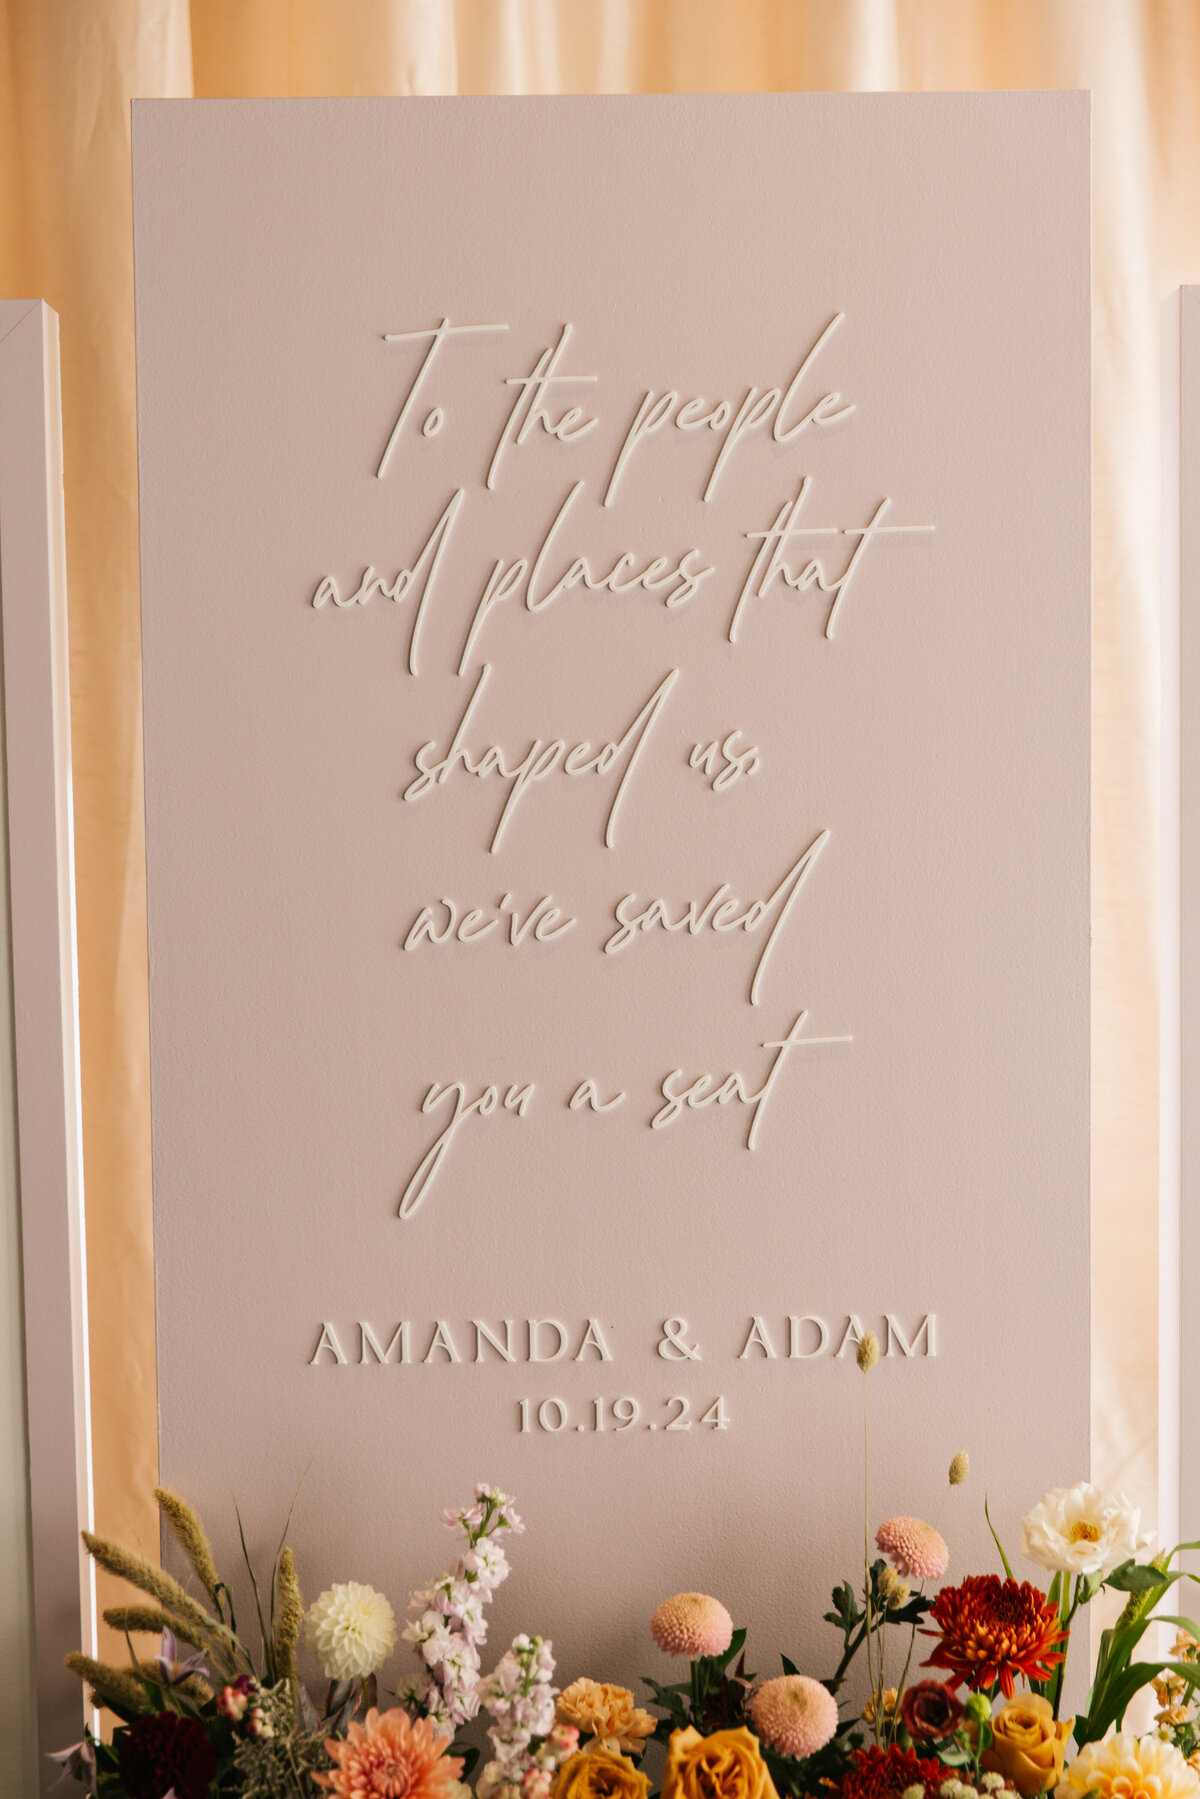 To the people
and places that
shaped us,
we've saved
you a seat
AMANDA & ADAM
10.19.24